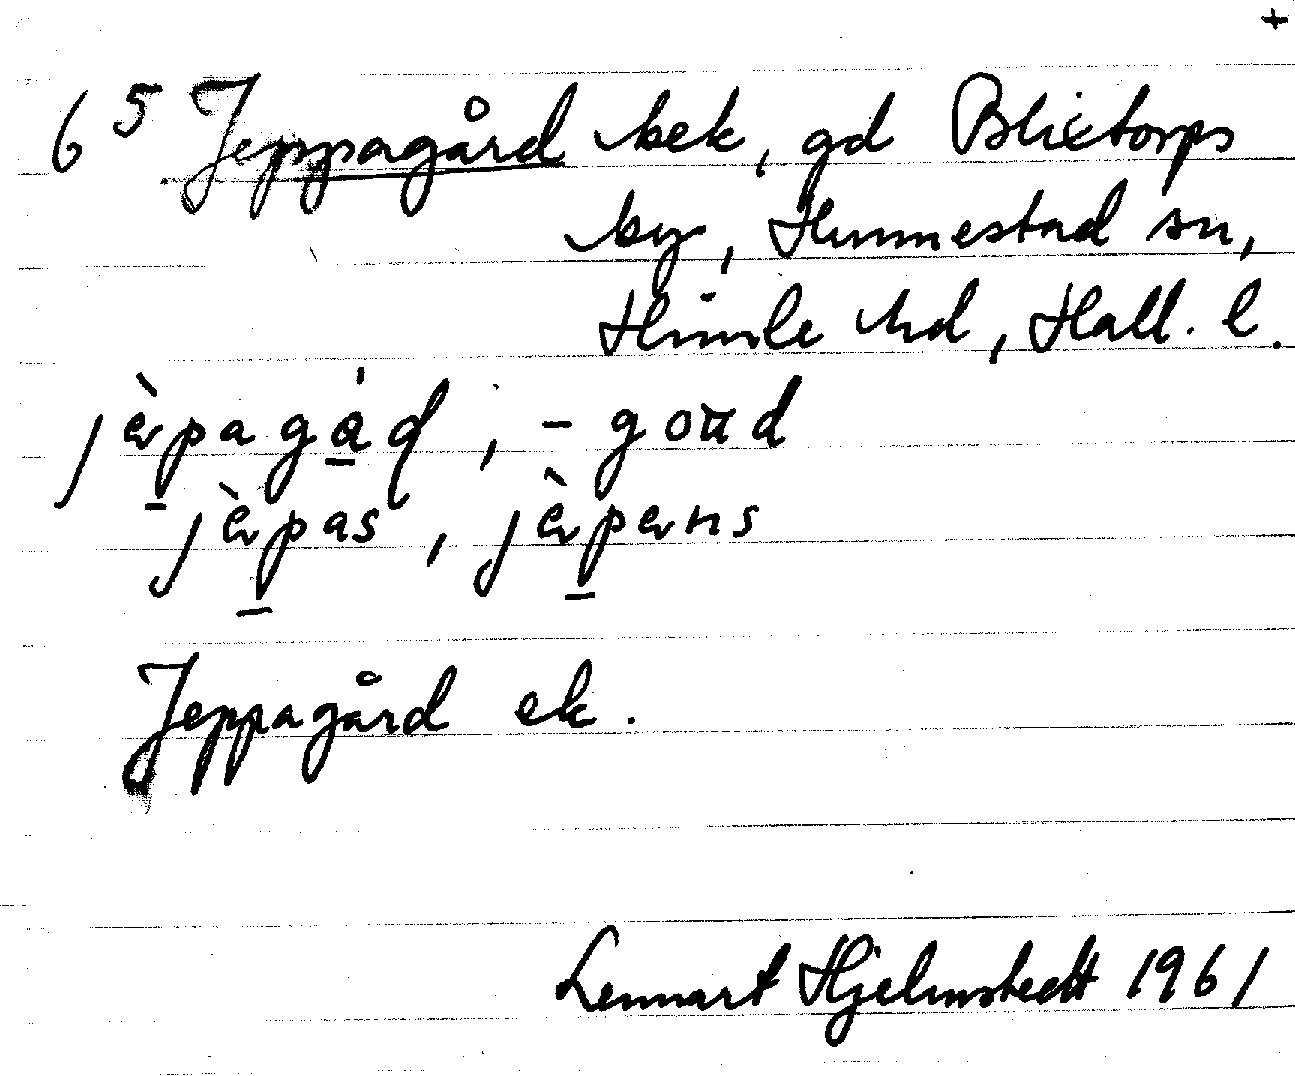 +
6⁵ Jeppagård bek, gd Blixtorps
by, Hunnestad sn,
Himle hd, Hall. l.
jæ̀pagád, -goud
jæ̀pas, jæ̀pærns
Jeppagård ek.
Lennart Hjelmstedt 1961